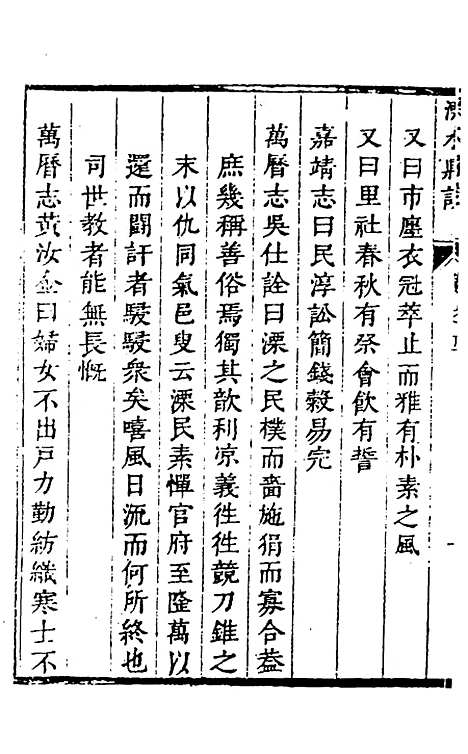 溧水縣志
又曰市廛衣冠萃止而雅有朴素之風
又曰里社春秋有祭會飲有誓
嘉靖志曰民淳訟簡錢穀易完
萬曆志吳仕詮曰溧之民樸而嗇施狷而寡合葢
庶幾稱善俗焉獨其歆利凉義徃徃競刀錐之
末以仇同氣邑叟云溧民素憚官府至隆萬以
還而鬪訐者駸駸衆矣嘻風日流而何所終也
司世教者能無長慨
萬曆志黃汝金曰婦女不出戸力勤紡織寒士不